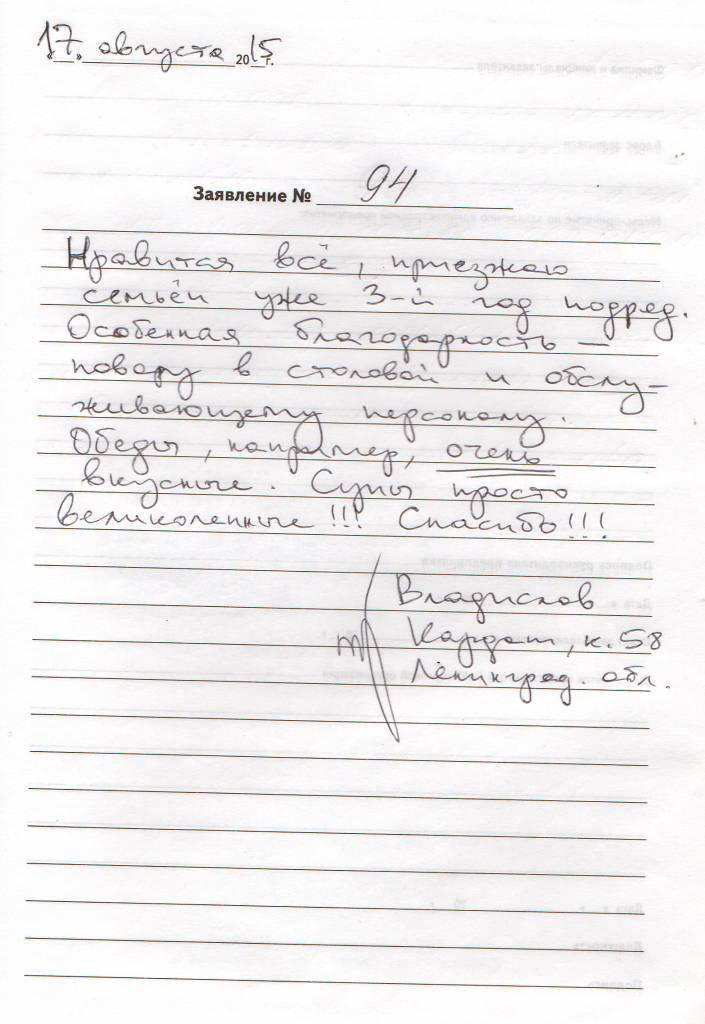 «17» августа 2015 г.
Заявление № 94
Нравится всё, приезжаю
семьёй уже 3-й год подряд.
Особенная благодарность –
повару в столовой и обслу-
живающему персоналу.
Обеды, например, очень
вкусные. Супы просто
великолепные!!! Спасибо!!!
Владислав
к. 58
Ленинград. обл.